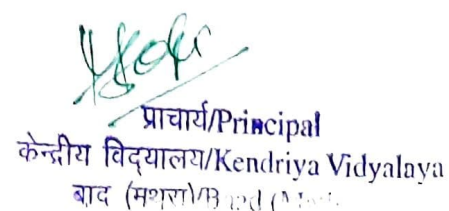 प्राचार्य/Principal
केन्द्रीय विद्यालय/Kendriya Vidyalaya
बाद (मथुरा)/